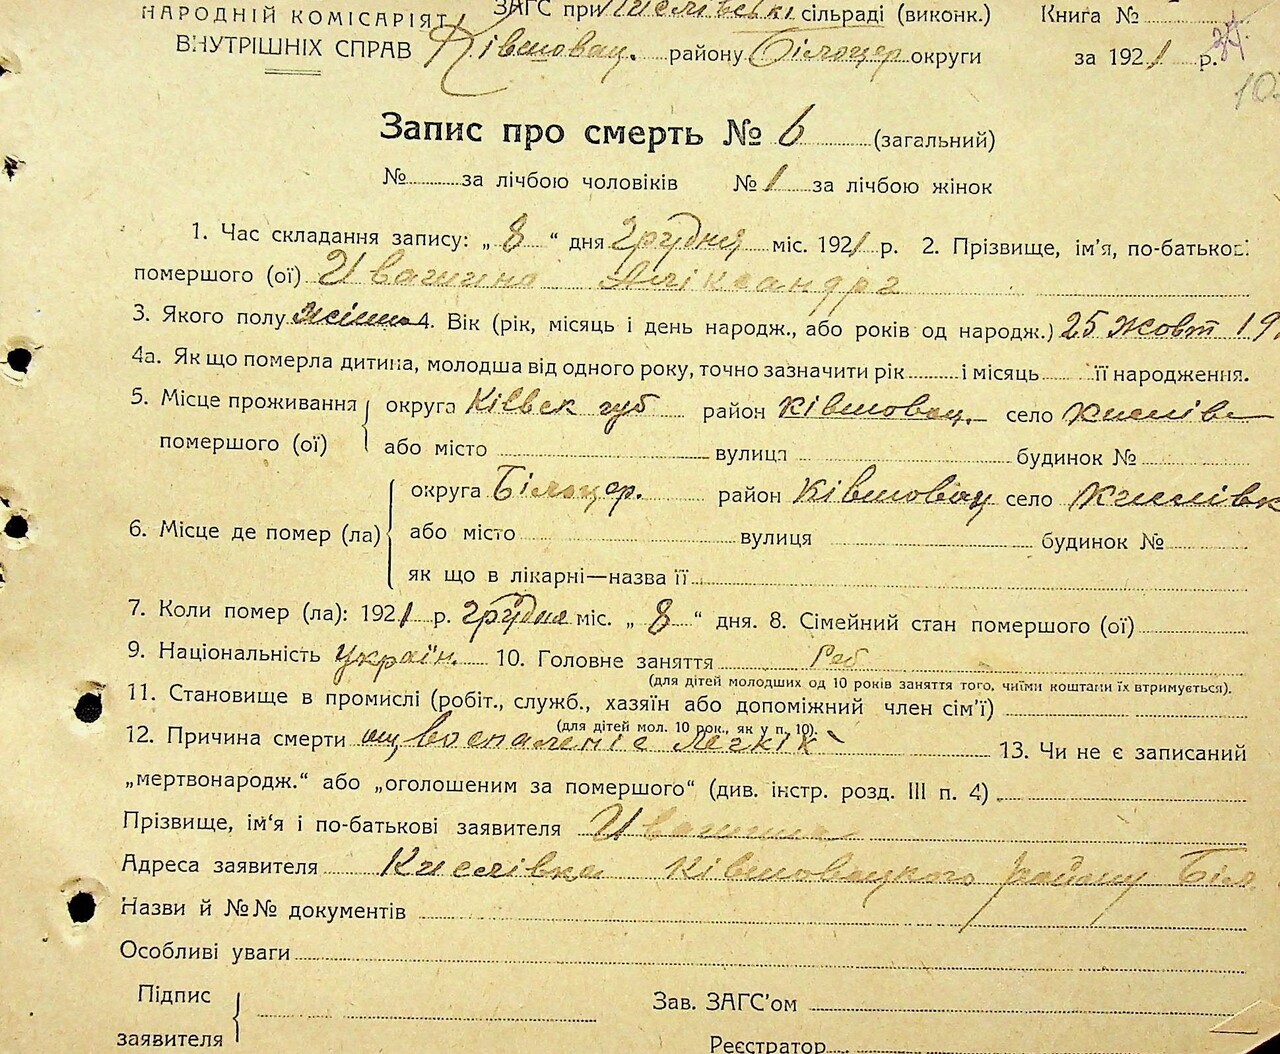 НАРОДНІЙ КОМІСАРІЯТ ЗАГС при Кислівські сільраді (виконк.) Книга №
ВНУТРІШНІХ СПРАВ Ківшовац. району Білоцер округи за 1921 р.
Запис про смерть № 6 (загальний)
№ за лічбою чоловіків № 1 за лічбою жінок
1. Час складання запису: „ 8 “ дня Грудня міс. 1921 р. 2. Прізвище, ім'я, по-батькові
помершого (ої) Олександра
3. Якого полу жіноч 4. Вік (рік, місяць і день народж., або років од народж.) 25 жовт 19
4а. Як що померла дитина, молодша від одного року, точно зазначити рік і місяць її народження.
5. Місце проживання округа Кіевск губ район Ківшовац. село Кислівк
помершого (ої) або місто вулиця будинок №
округа Білоцер. район Ківшовац село Кислівк
6. Місце де помер (ла) або місто вулиця будинок №
як що в лікарні—назва її
7. Коли помер (ла): 1921 р. Грудня міс. „ 8 “ дня. 8. Сімейний стан помершого (ої)
9. Національність україн. 10. Головне заняття
(для дітей молодших од 10 років заняття того, чиїми коштами їх втримується).
11. Становище в промислі (робіт., служб., хазяїн або допоміжний член сім'ї)
(для дітей мол. 10 рок., як у п. 10).
12. Причина смерти воспаленіє легкіх 13. Чи не є записаний
„мертвонародж.“ або „оголошеним за помершого“ (див. інстр. розд. III п. 4)
Прізвище, ім'я і по-батькові заявителя
Адреса заявителя Кислівка Ківшовацкого району Біл.
Назви й №№ документів
Особливі уваги
Підпис Зав. ЗАГС'ом
заявителя Реєстратор